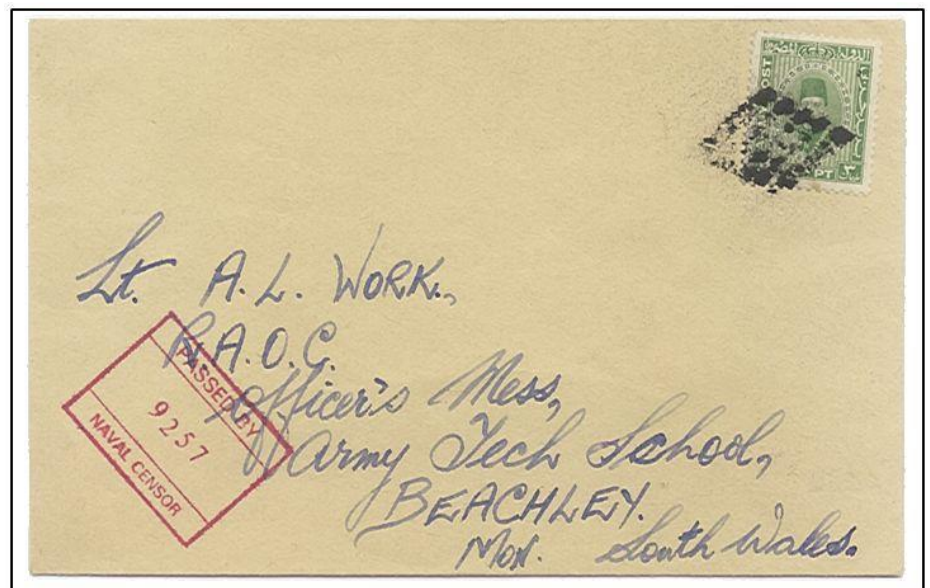 POST
PT
Lt. A. L. WORK.,
R.A.O.C.
Officer's Mess,
Army Tech School,
BEACHLEY.
Mon. South Wales.
PASSED BY
9257
NAVAL CENSOR